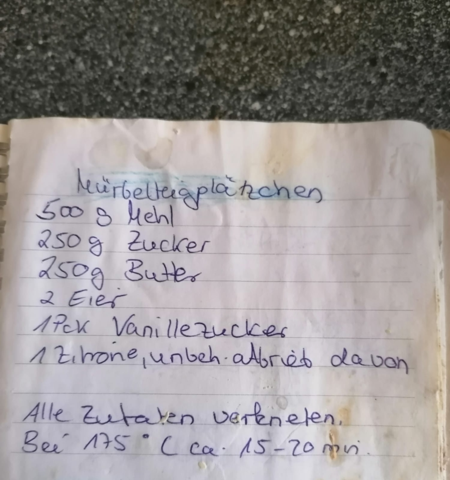 Mürbeteigplätzchen
500 g Mehl
250 g Zucker
250g Butter
2 Eier
1 Pck Vanillezucker
1 Zitrone, unbeh. Abrieb davon
Alle Zutaten verkneten.
Bei 175°C ca. 15-20 min.